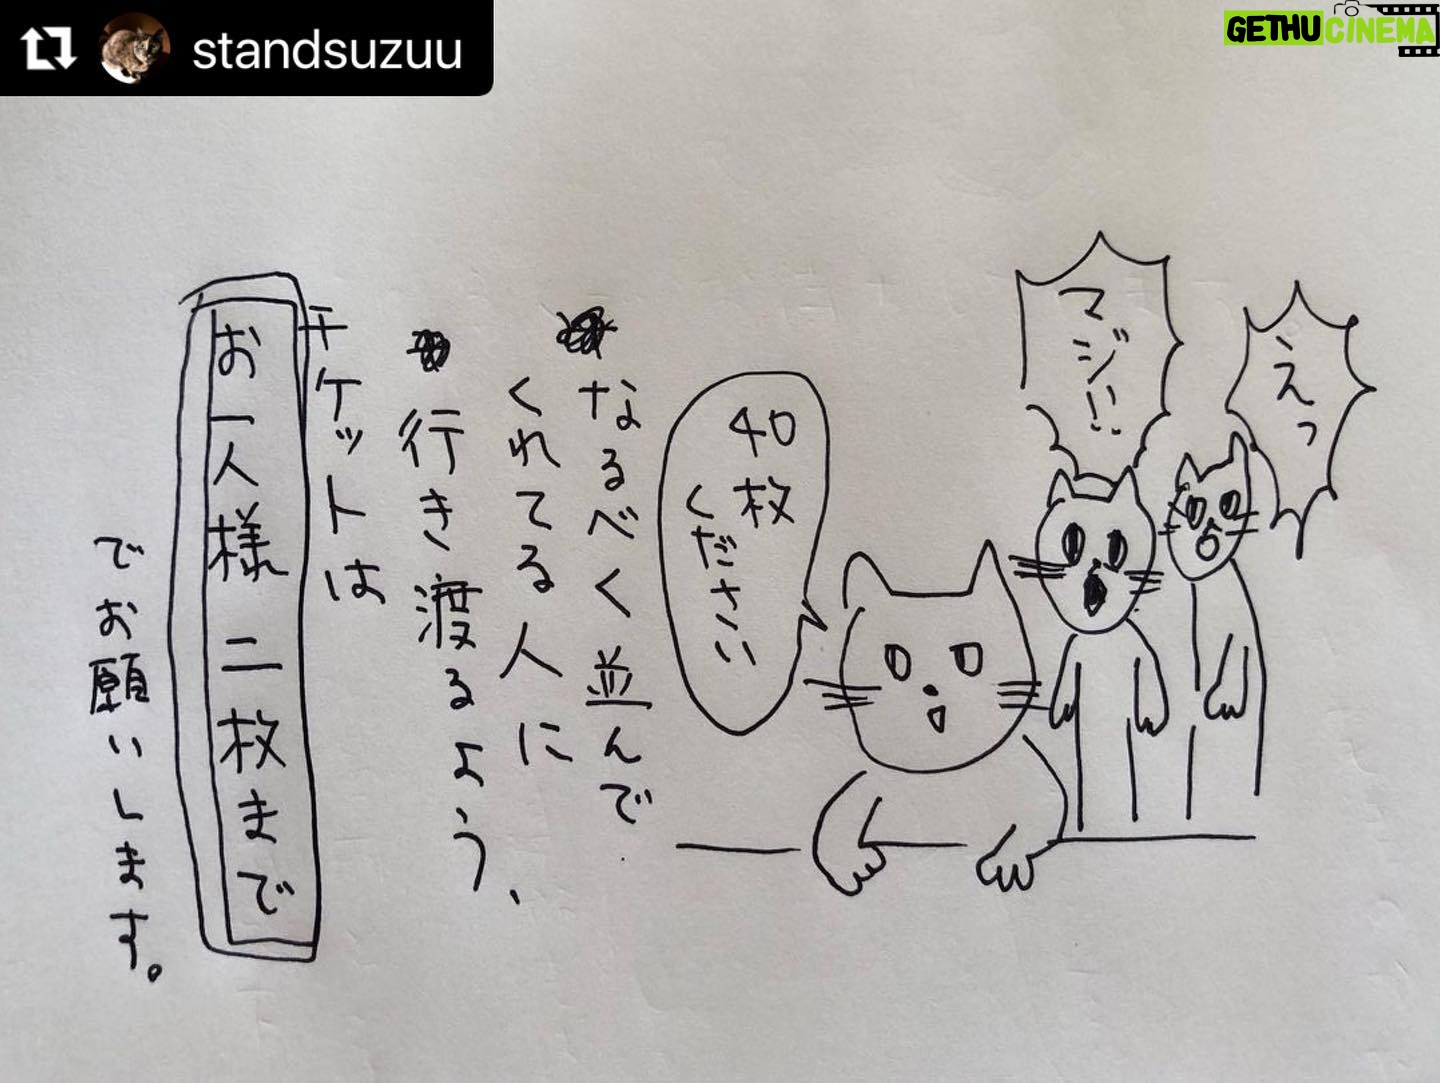 standsuzuu
GETHUCINEMA
えっ
マジ!!
40枚
ください
なるべく並んで
くれてる人に
行き渡るよう、
チケットは
お一人様 二枚まで
でお願いします。